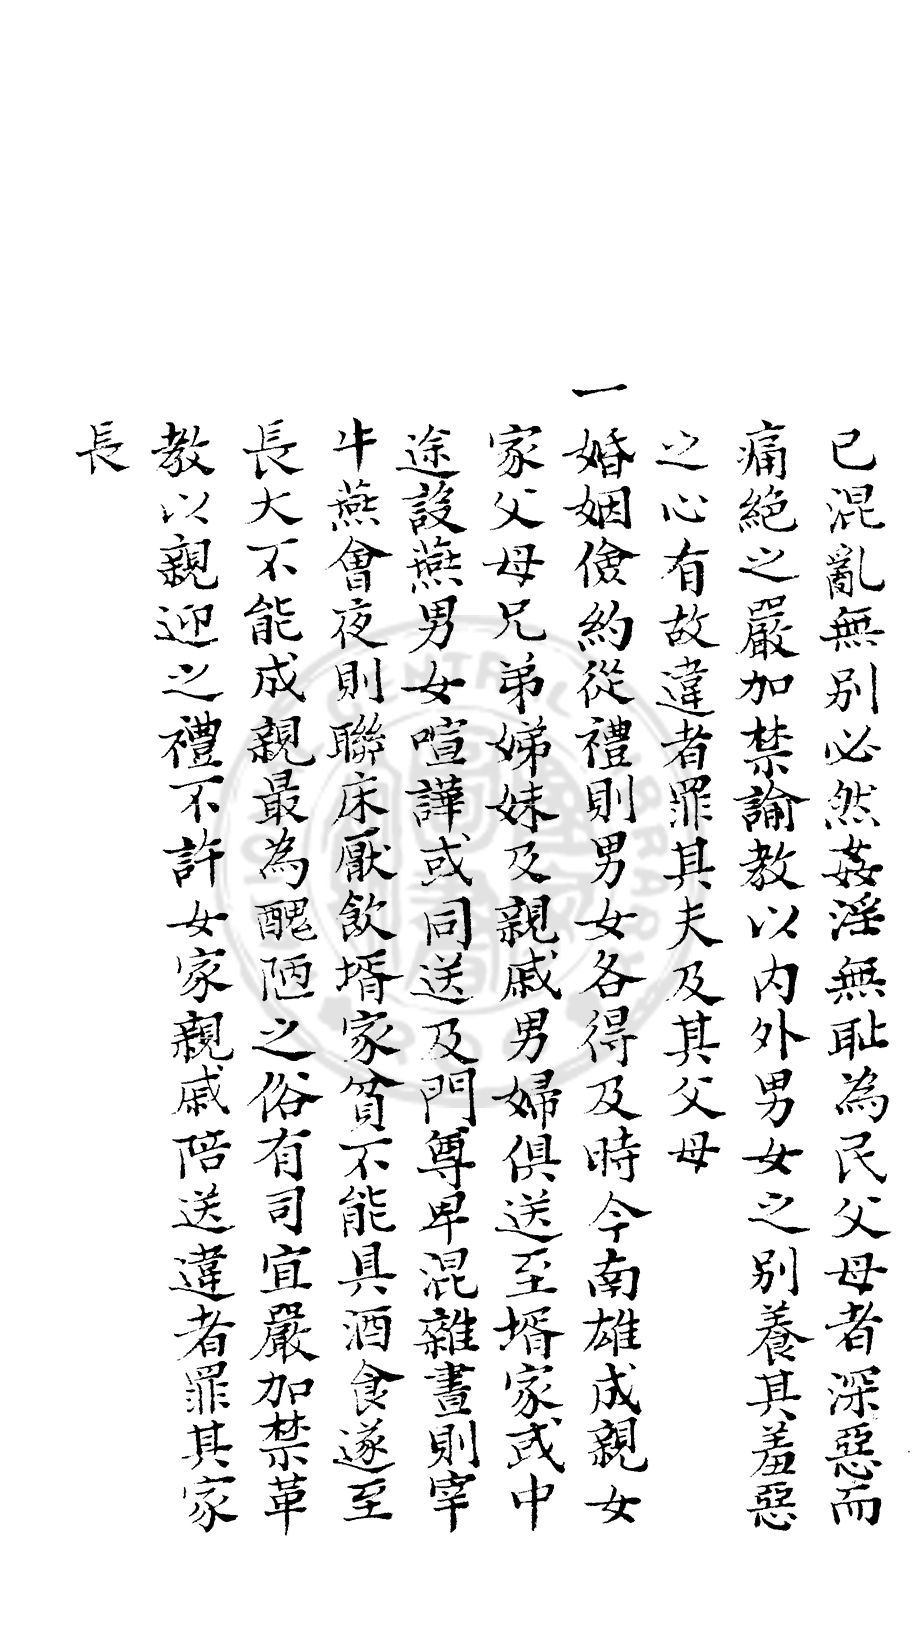 已混亂無別必然姦淫無耻為民父母者深惡而
痛絕之嚴加禁諭教以内外男女之別養其羞惡
之心有故違者罪其夫及其父母
一婚姻儉約從禮則男女各得及時今南雄成親女
家父母兄弟娣妹及親戚男婦俱送至壻家或中
途設燕男女喧譁或同送及門尊卑混雜晝則宰
牛燕會夜則聯床厭飲壻家貧不能具酒食遂至
長大不能成親最為醜陋之俗有司宜嚴加禁革
教以親迎之禮不許女家親戚陪送違者罪其家
長
CENTRAL LIBRARY